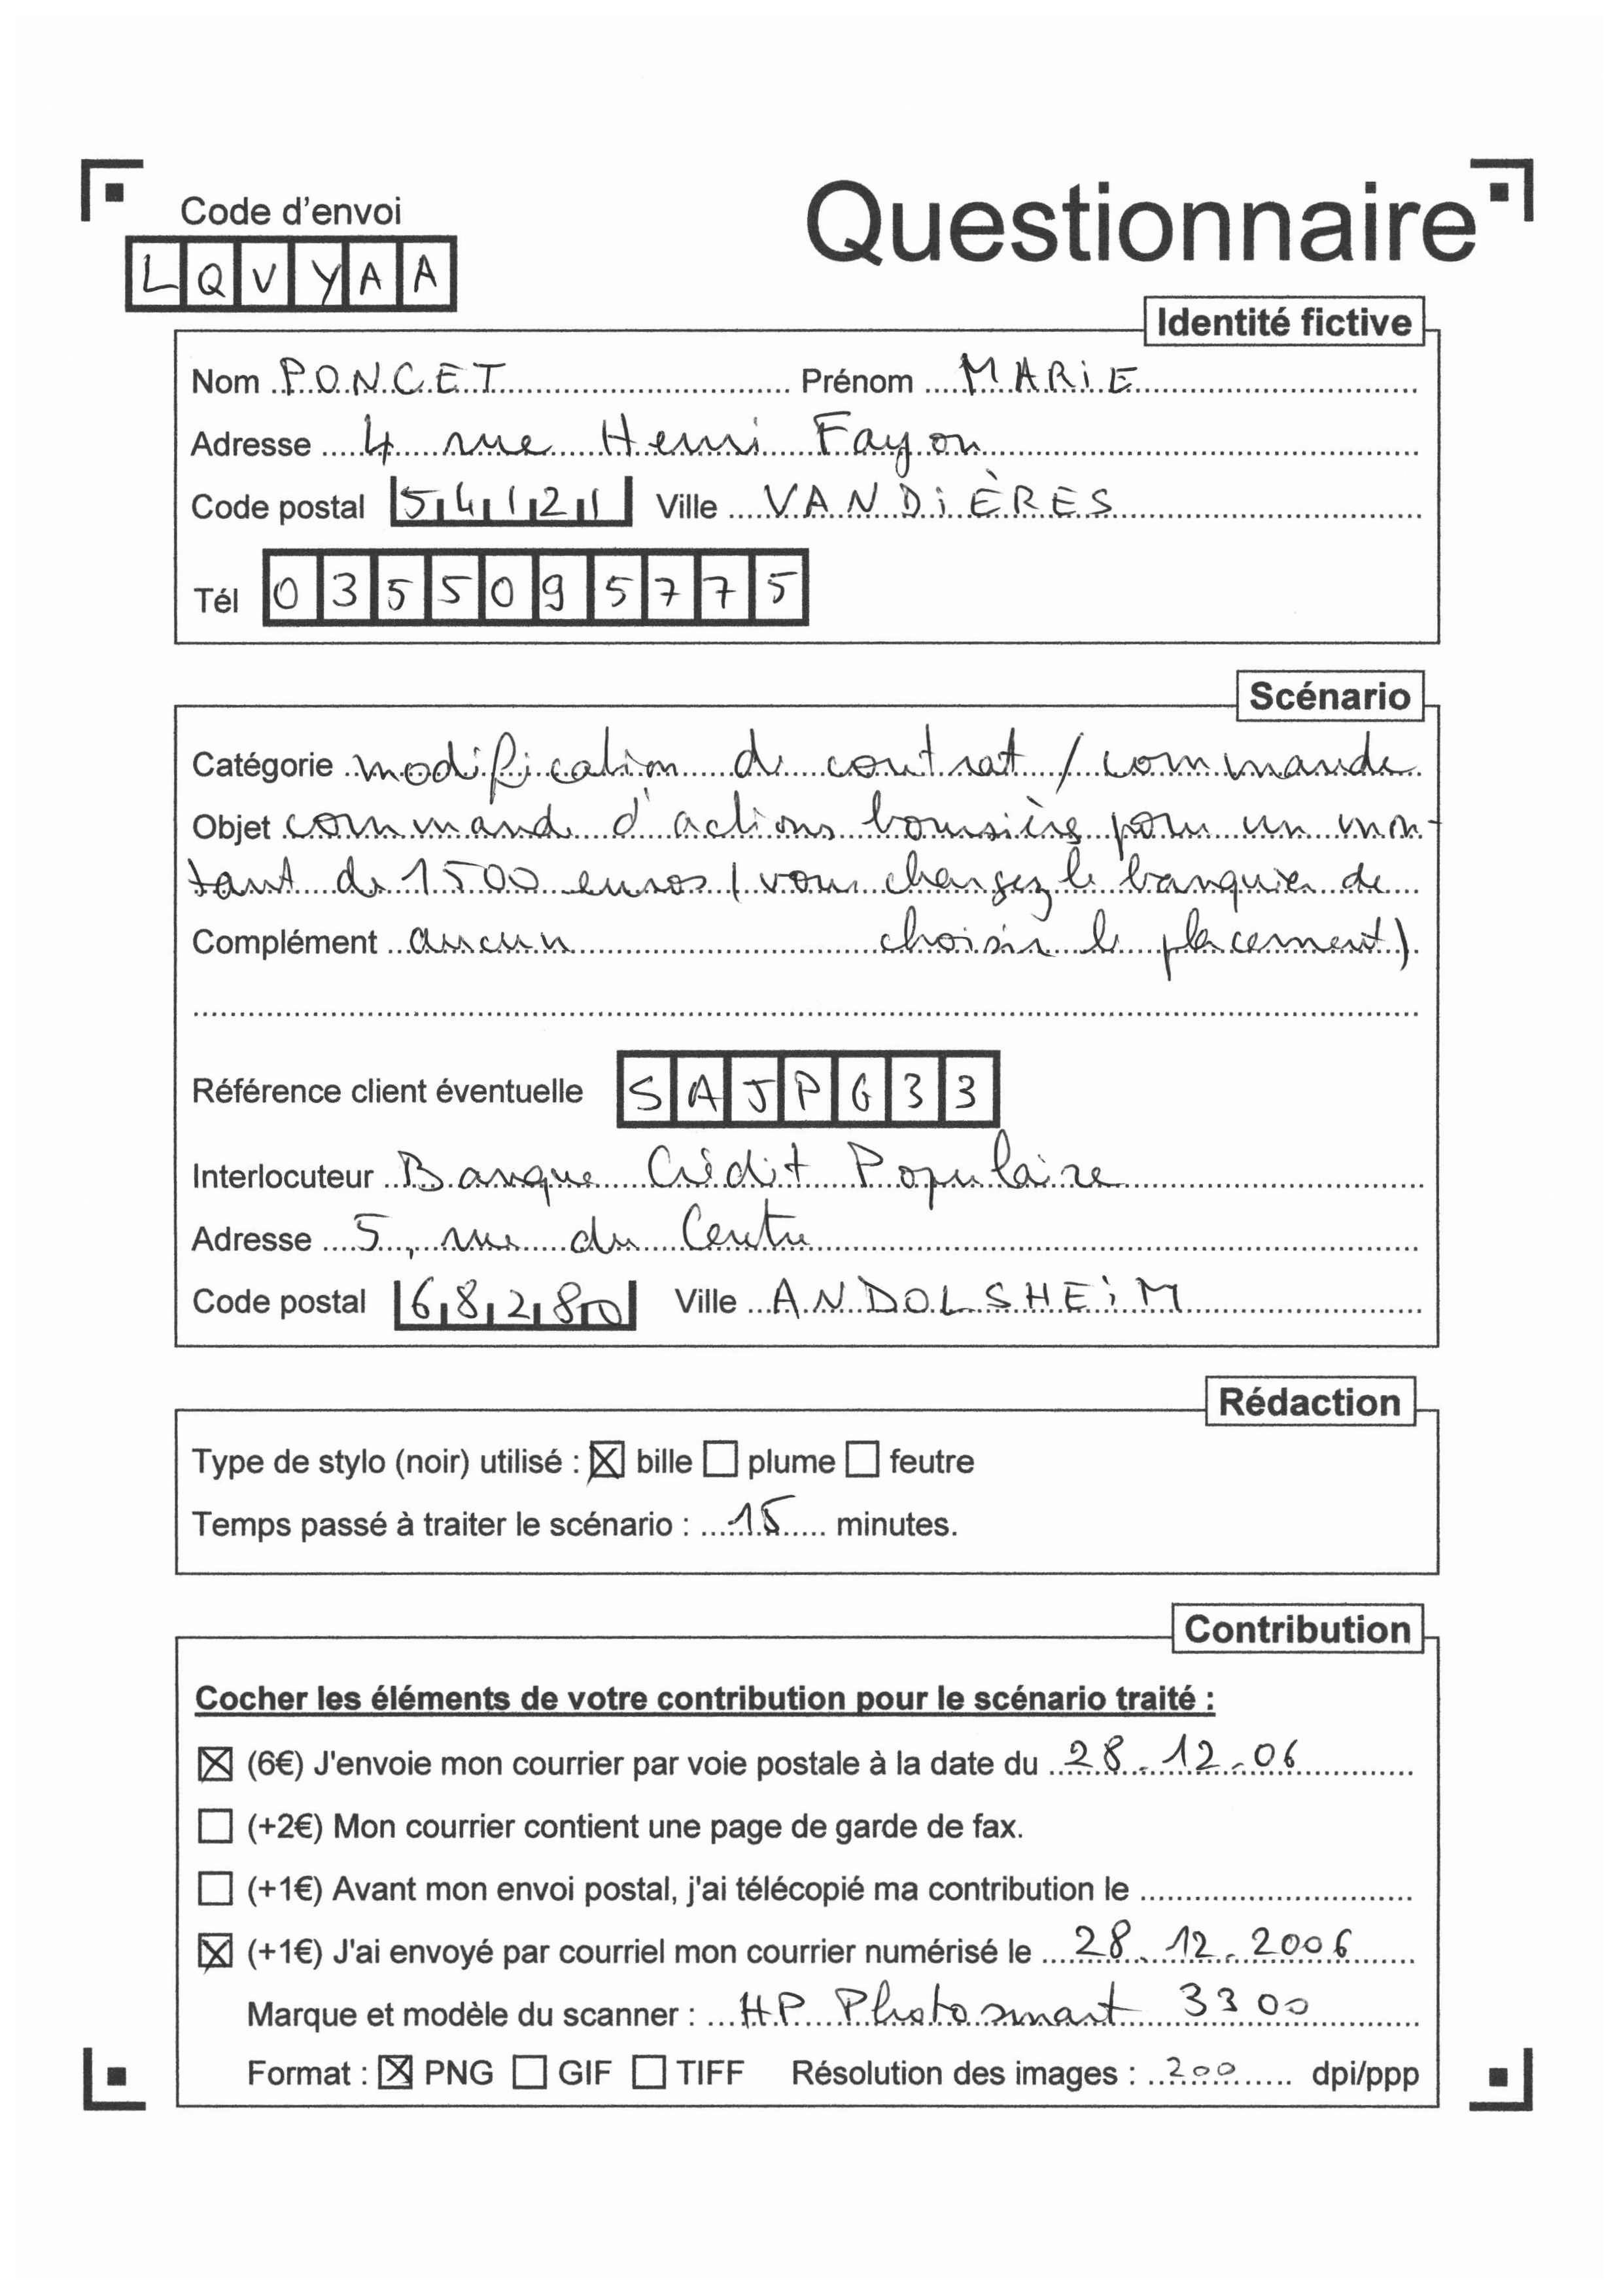 Code d'envoi
Questionnaire
LQVYAA
Identité fictive
Nom PONCET Prénom MARIE
Adresse 4 rue Henri Fayon
Code postal 54121 Ville VANDIÈRES
Tél 0355095775
Scénario
Catégorie modification de contrat / commande
Objet commande d'actions boursières pour un mon-
tant de 1500 euros (vous chargez le banquier de
Complément aucun choisir le placement)
Référence client éventuelle SAJPG33
Interlocuteur Banque Crédit Populaire
Adresse 5, rue du Centre
Code postal 68280 Ville ANDOLSHEIM
Rédaction
Type de stylo (noir) utilisé : ☒ bille ☐ plume ☐ feutre
Temps passé à traiter le scénario : 15 minutes.
Contribution
Cocher les éléments de votre contribution pour le scénario traité :
☒ (6€) J'envoie mon courrier par voie postale à la date du 28.12.06
☐ (+2€) Mon courrier contient une page de garde de fax.
☐ (+1€) Avant mon envoi postal, j'ai télécopié ma contribution le
☒ (+1€) J'ai envoyé par courriel mon courrier numérisé le 28.12.2006
Marque et modèle du scanner : HP Photosmart 3300
Format : ☒ PNG ☐ GIF ☐ TIFF Résolution des images : 200 dpi/ppp